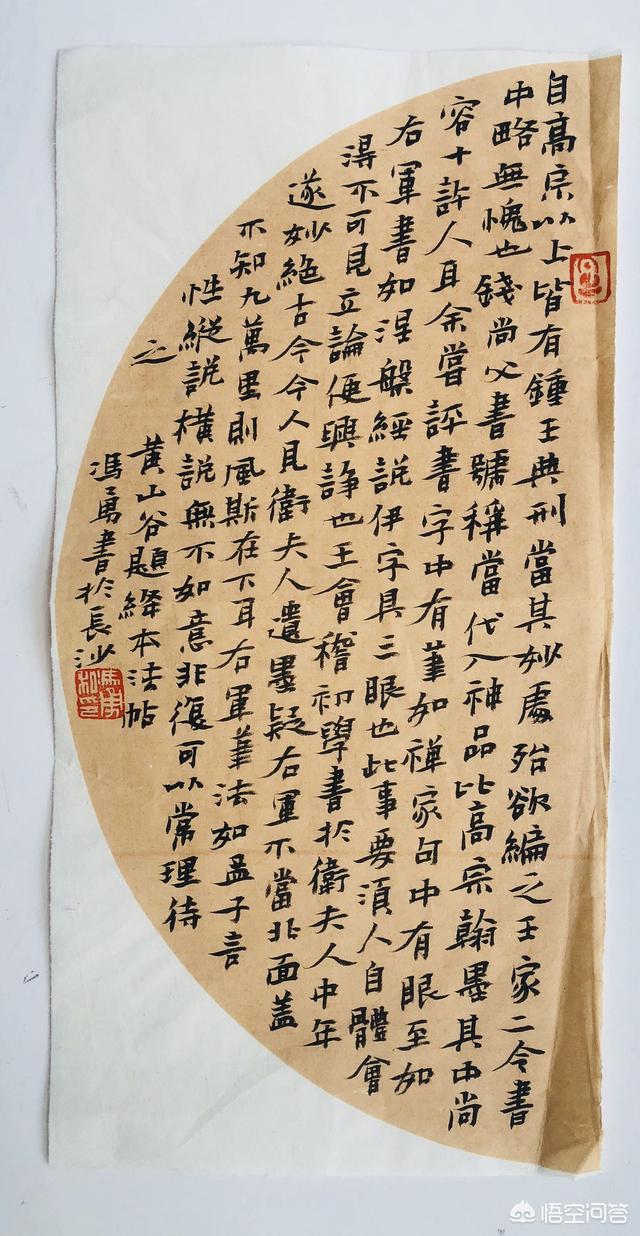 自高宗以上皆有鍾王典刑當其妙處殆欲編之王家二令書
中略無愧也錢尚父書號稱當代入神品比高宗翰墨其中尚
容十許人耳余嘗評書字中有筆如禪家句中有眼至如
右軍書如涅槃經說伊字具三眼也此事要須人自體會
得不可見立論便興諍也王會稽初學書於衛夫人中年
遂妙絕古今今人見衛夫人遺墨疑右軍不當北面蓋
不知九萬里則風斯在下耳右軍筆法如孟子言
性縱說橫說無不如意非復可以常理待
之
黃山谷題絳本法帖
馮勇書於長沙
悟空问答